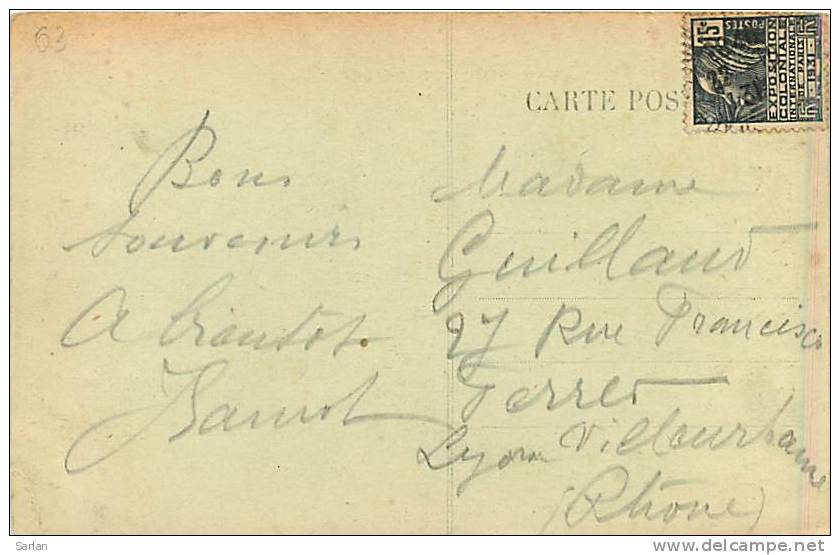 63
CARTE POS
15c
POSTES
EXPOSITION
COLONIALE
INTERNATIONALE
DE PARIS
1931
Bons
souvenirs
A bientôt
Madame
Guilland
27 Rue Francisco
Ferrer
Lyon Villeurbanne
(Rhône)
Sarlan
www.delcampe.net